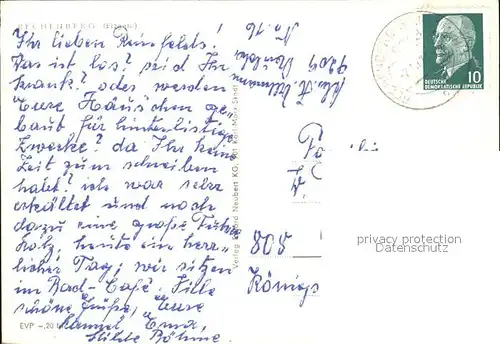 RECHENBERG (Erzgeb.)
Ihr lieben Reinfelds!
Was ist los? seid Ihr
krank? oder werden
Eure Häuschen ge-
baut für hinterlistige
Zwecke? da Ihr keine
Zeit zum schreiben
habt! ich war sehr
erkältet und noch
dazu eine große Fuhre
Holz, heute ein herr-
licher Tag; wir sitzen
im Bad-Café. Viele
schöne Grüße, Eure
Hilde Böhme
EVP -,20
Verlag Erhard Neubert KG, Karl-Marx-Stadt
No. 16
DEUTSCHE
DEMOKRATISCHE REPUBLIK
10
808
Königs
privacy protection
Datenschutz